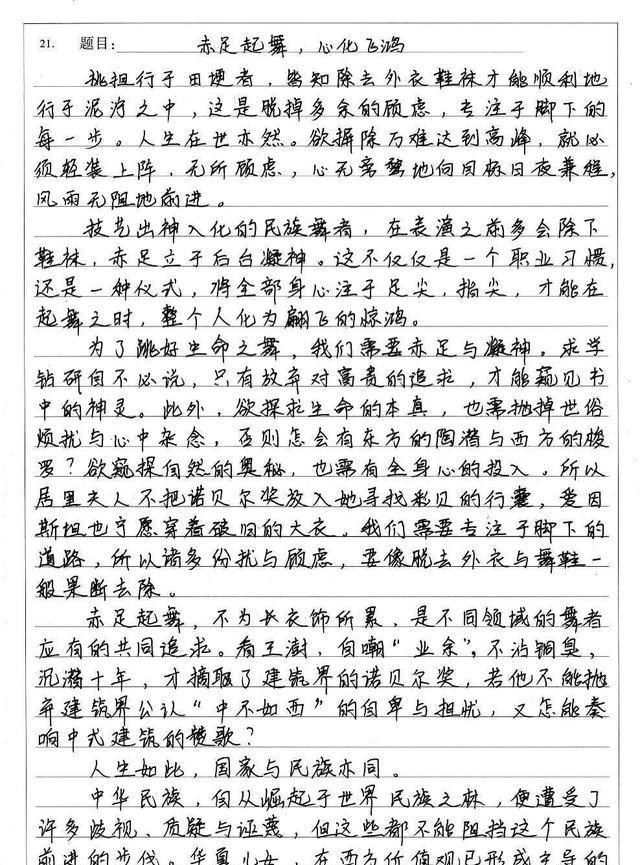 21. 题目: 赤足起舞，心化飞鸿
挑担行于田埂者，皆知除去外衣鞋袜才能顺利地
行于泥泞之中，这是脱掉多余的顾虑，专注于脚下的
每一步。人生在世亦然。欲摒除万难达到高峰，就必
须轻装上阵，无所顾虑，心无旁骛地向目标日夜兼程，
风雨无阻地前进。
技艺出神入化的民族舞者，在表演之前多会除下
鞋袜，赤足立于后台凝神。这不仅仅是一个职业习惯，
还是一种仪式，将全部身心注于足尖，指尖，才能在
起舞之时，整个人化为翩飞的惊鸿。
为了跳好生命之舞，我们需要赤足与凝神。求学
钻研自不必说，只有放弃对高贵的追求，才能窥见书
中的神灵。此外，欲探求生命的本真，也需抛掉世俗
烦扰与心中杂念，否则怎会有东方的陶潜与西方的梭
罗？欲窥探自然的奥秘，也需有全身心的投入。所以
居里夫人不把诺贝尔奖放入她寻找彩贝的行囊，爱因
斯坦也宁愿穿着破旧的大衣。我们需要专注于脚下的
道路，所以诸多纷扰与顾虑，要像脱去外衣与舞鞋一
般果断去除。
赤足起舞，不为长衣饰所累，是不同领域的舞者
应有的共同追求。看王澍，自嘲“业余”，不沾铜臭，
沉潜十年，才摘取了建筑界的诺贝尔奖，若他不能抛
弃建筑界公认“中不如西”的自卑与担忧，又怎能奏
响中式建筑的凌歌？
人生如此，国家与民族亦同。
中华民族，自从崛起于世界民族之林，便遭受了
许多歧视、质疑与诬蔑，但这些都不能阻挡这个民族
前进的步伐。华夏儿女，在西方价值观已形成主导的